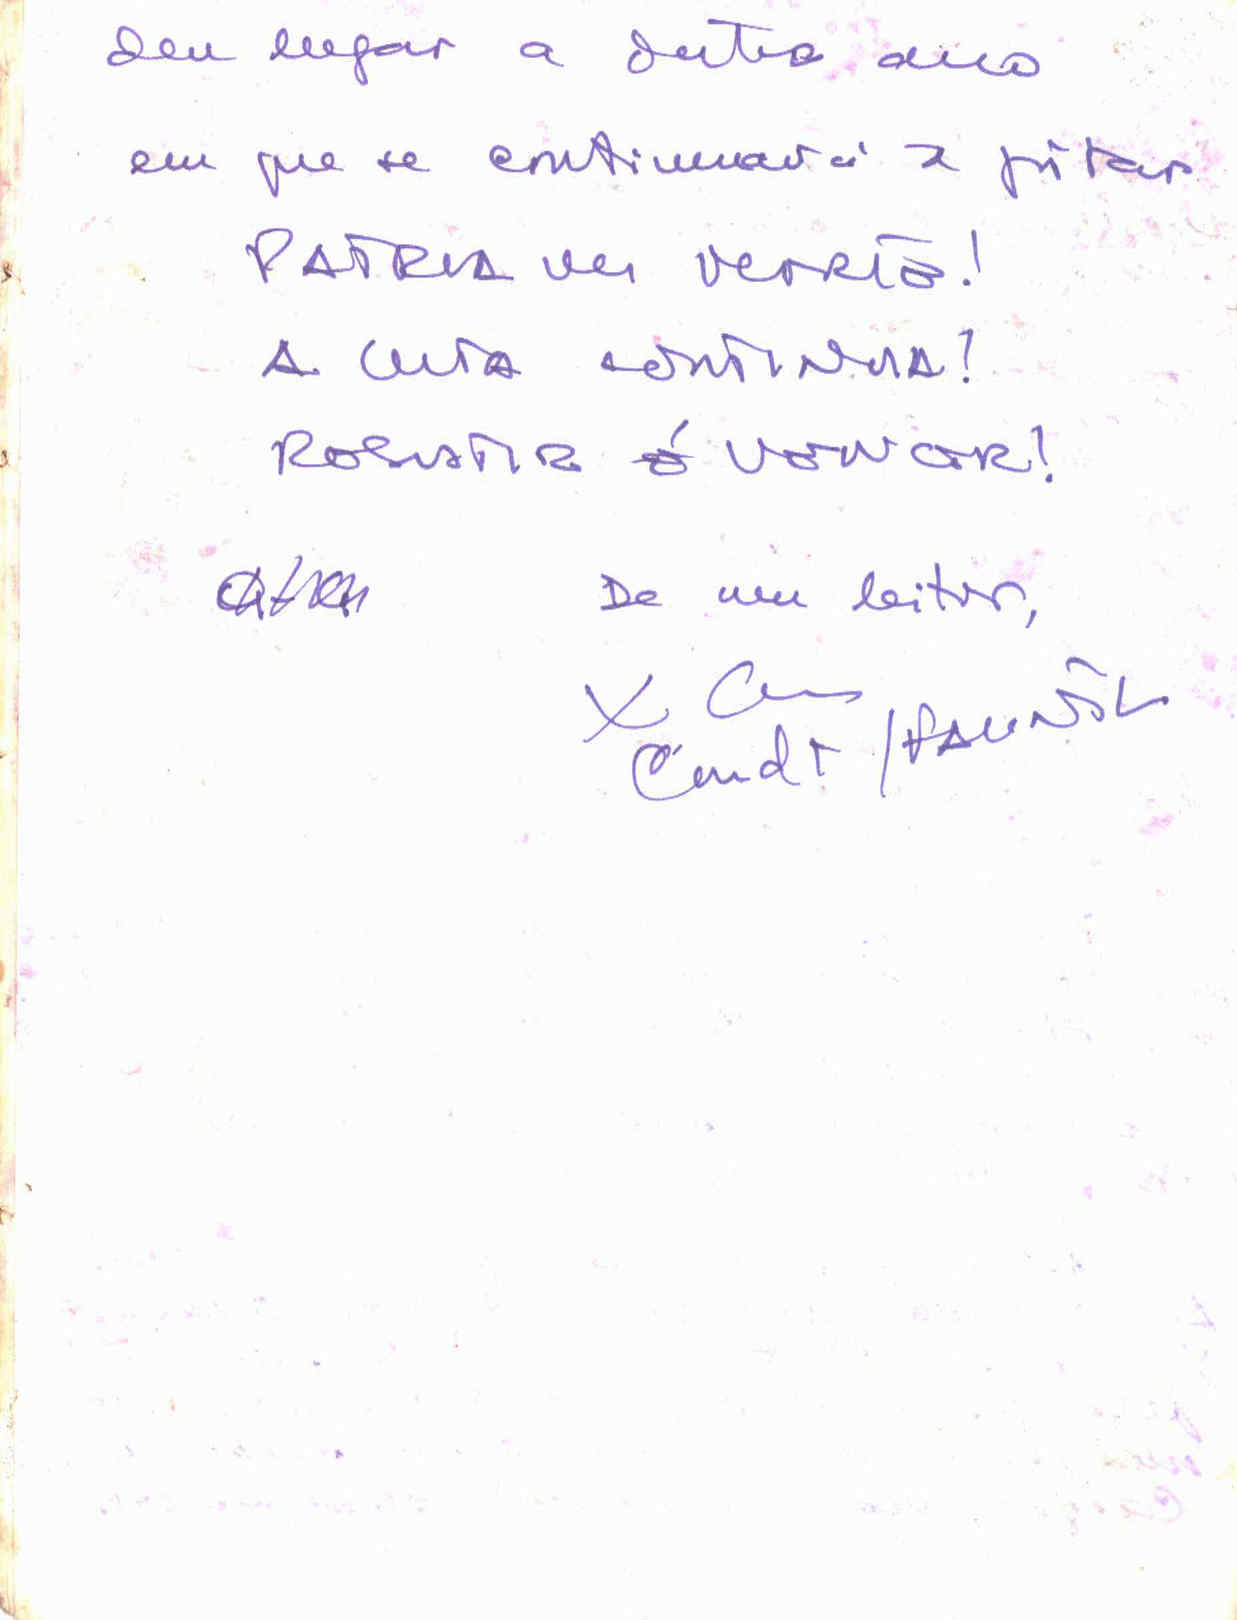 deu lugar a outro ano
em que se continuará a gritar
PATRIA OU MORTE!
A LUTA CONTINUA!
RESISTIR É VENCER!
De um leitor,
X
Cmdt FALINTIL